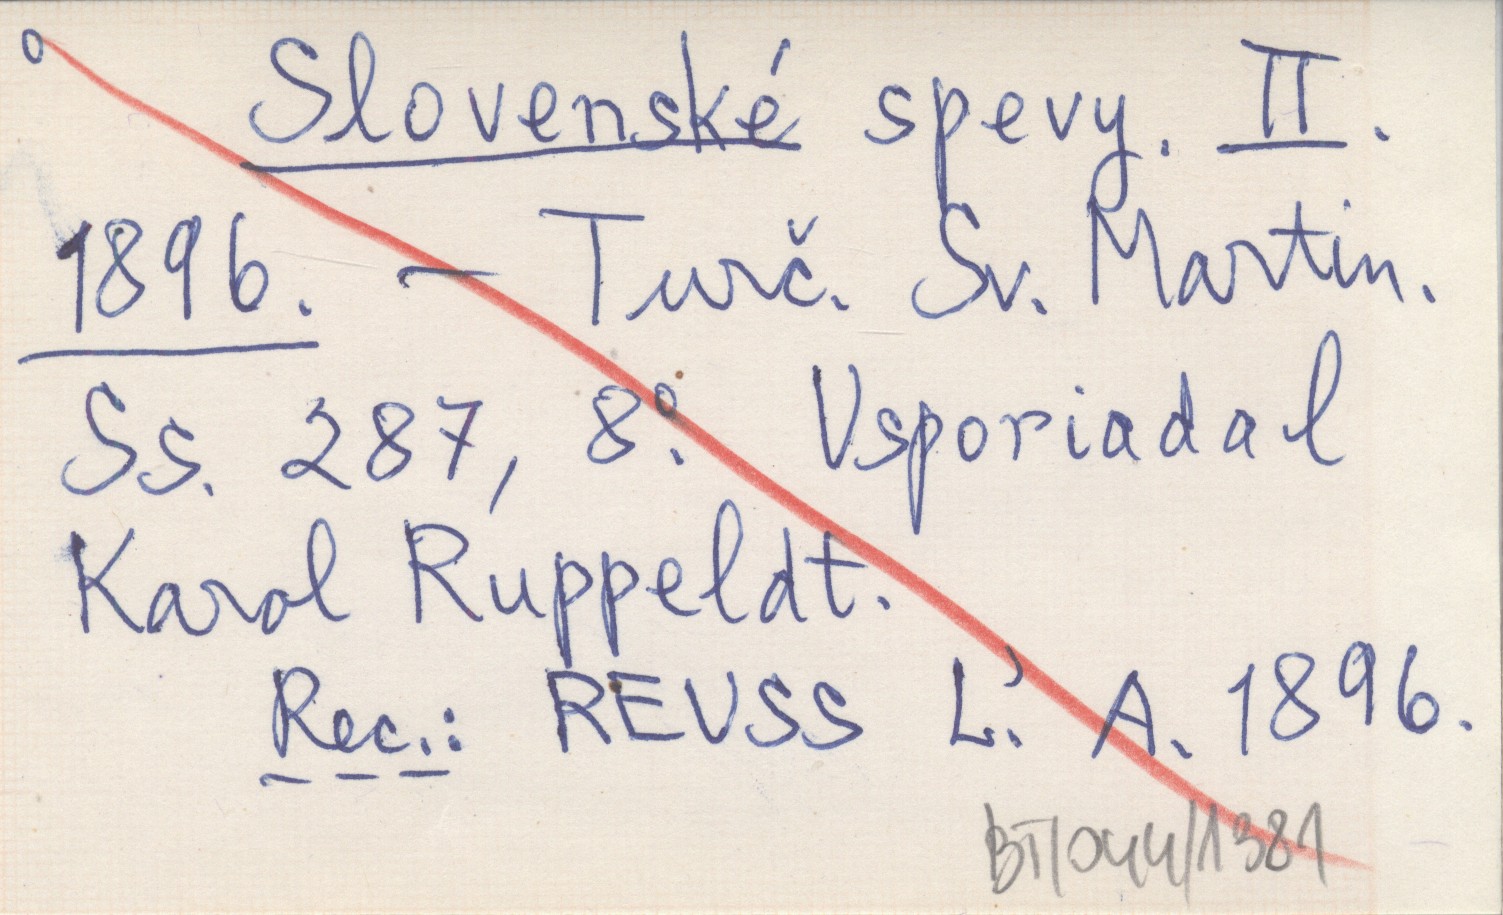 ° Slovenské spevy. II.
1896. — Turč. Sv. Martin.
Ss. 287, 8°. Vsporiadal
Karol Ruppeldt.
Rec.: REUSS Ľ. A. 1896.
BT/044/1381